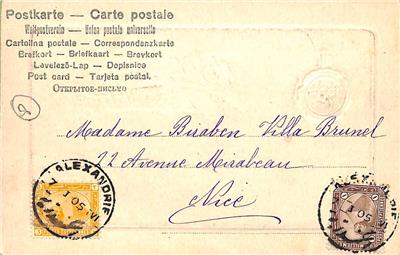 Postkarte — Carte postale
Weltpostverein — Union postale universelle
Cartolina postale — Correspondenzkarte
Brefkort — Briefkaart — Brevkort
Levelező-Lap — Dopisnice
Post card — Tarjeta postal
Открытое-письмо
Madame Biraben Villa Brunel
22 Avenue Mirabeau
Nice
ALEXANDRIE
1 05 VI
ALEXANDRIE
1 05 VI